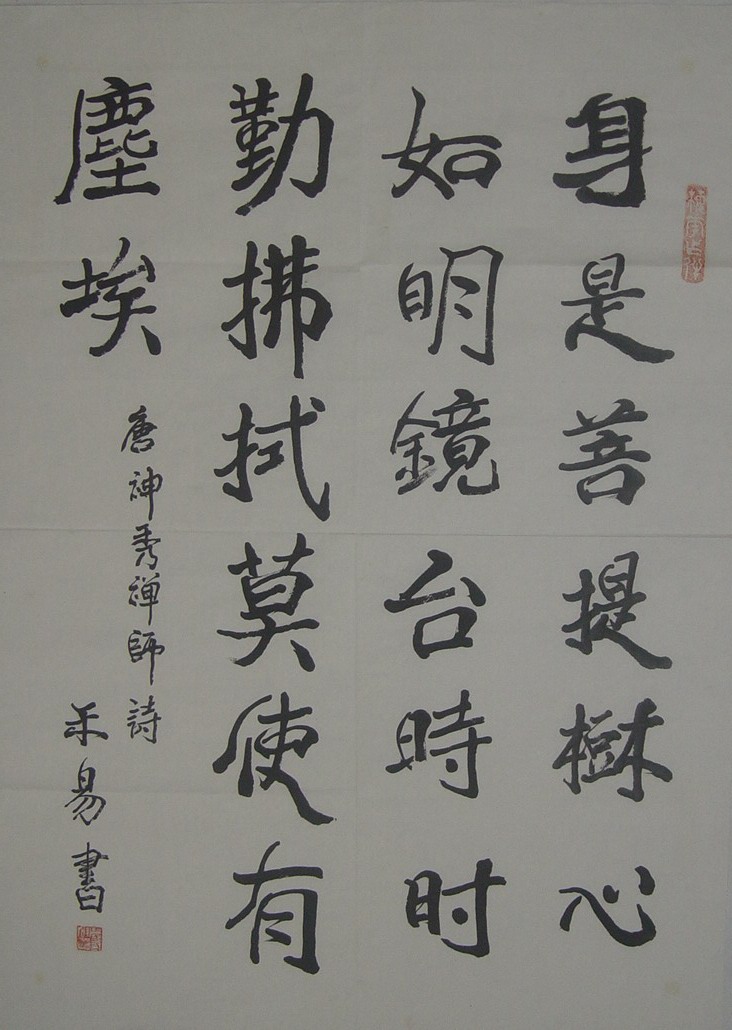 身是菩提樹心
如明鏡台時时
勤拂拭莫使有
塵埃
唐神秀禅師詩
易書